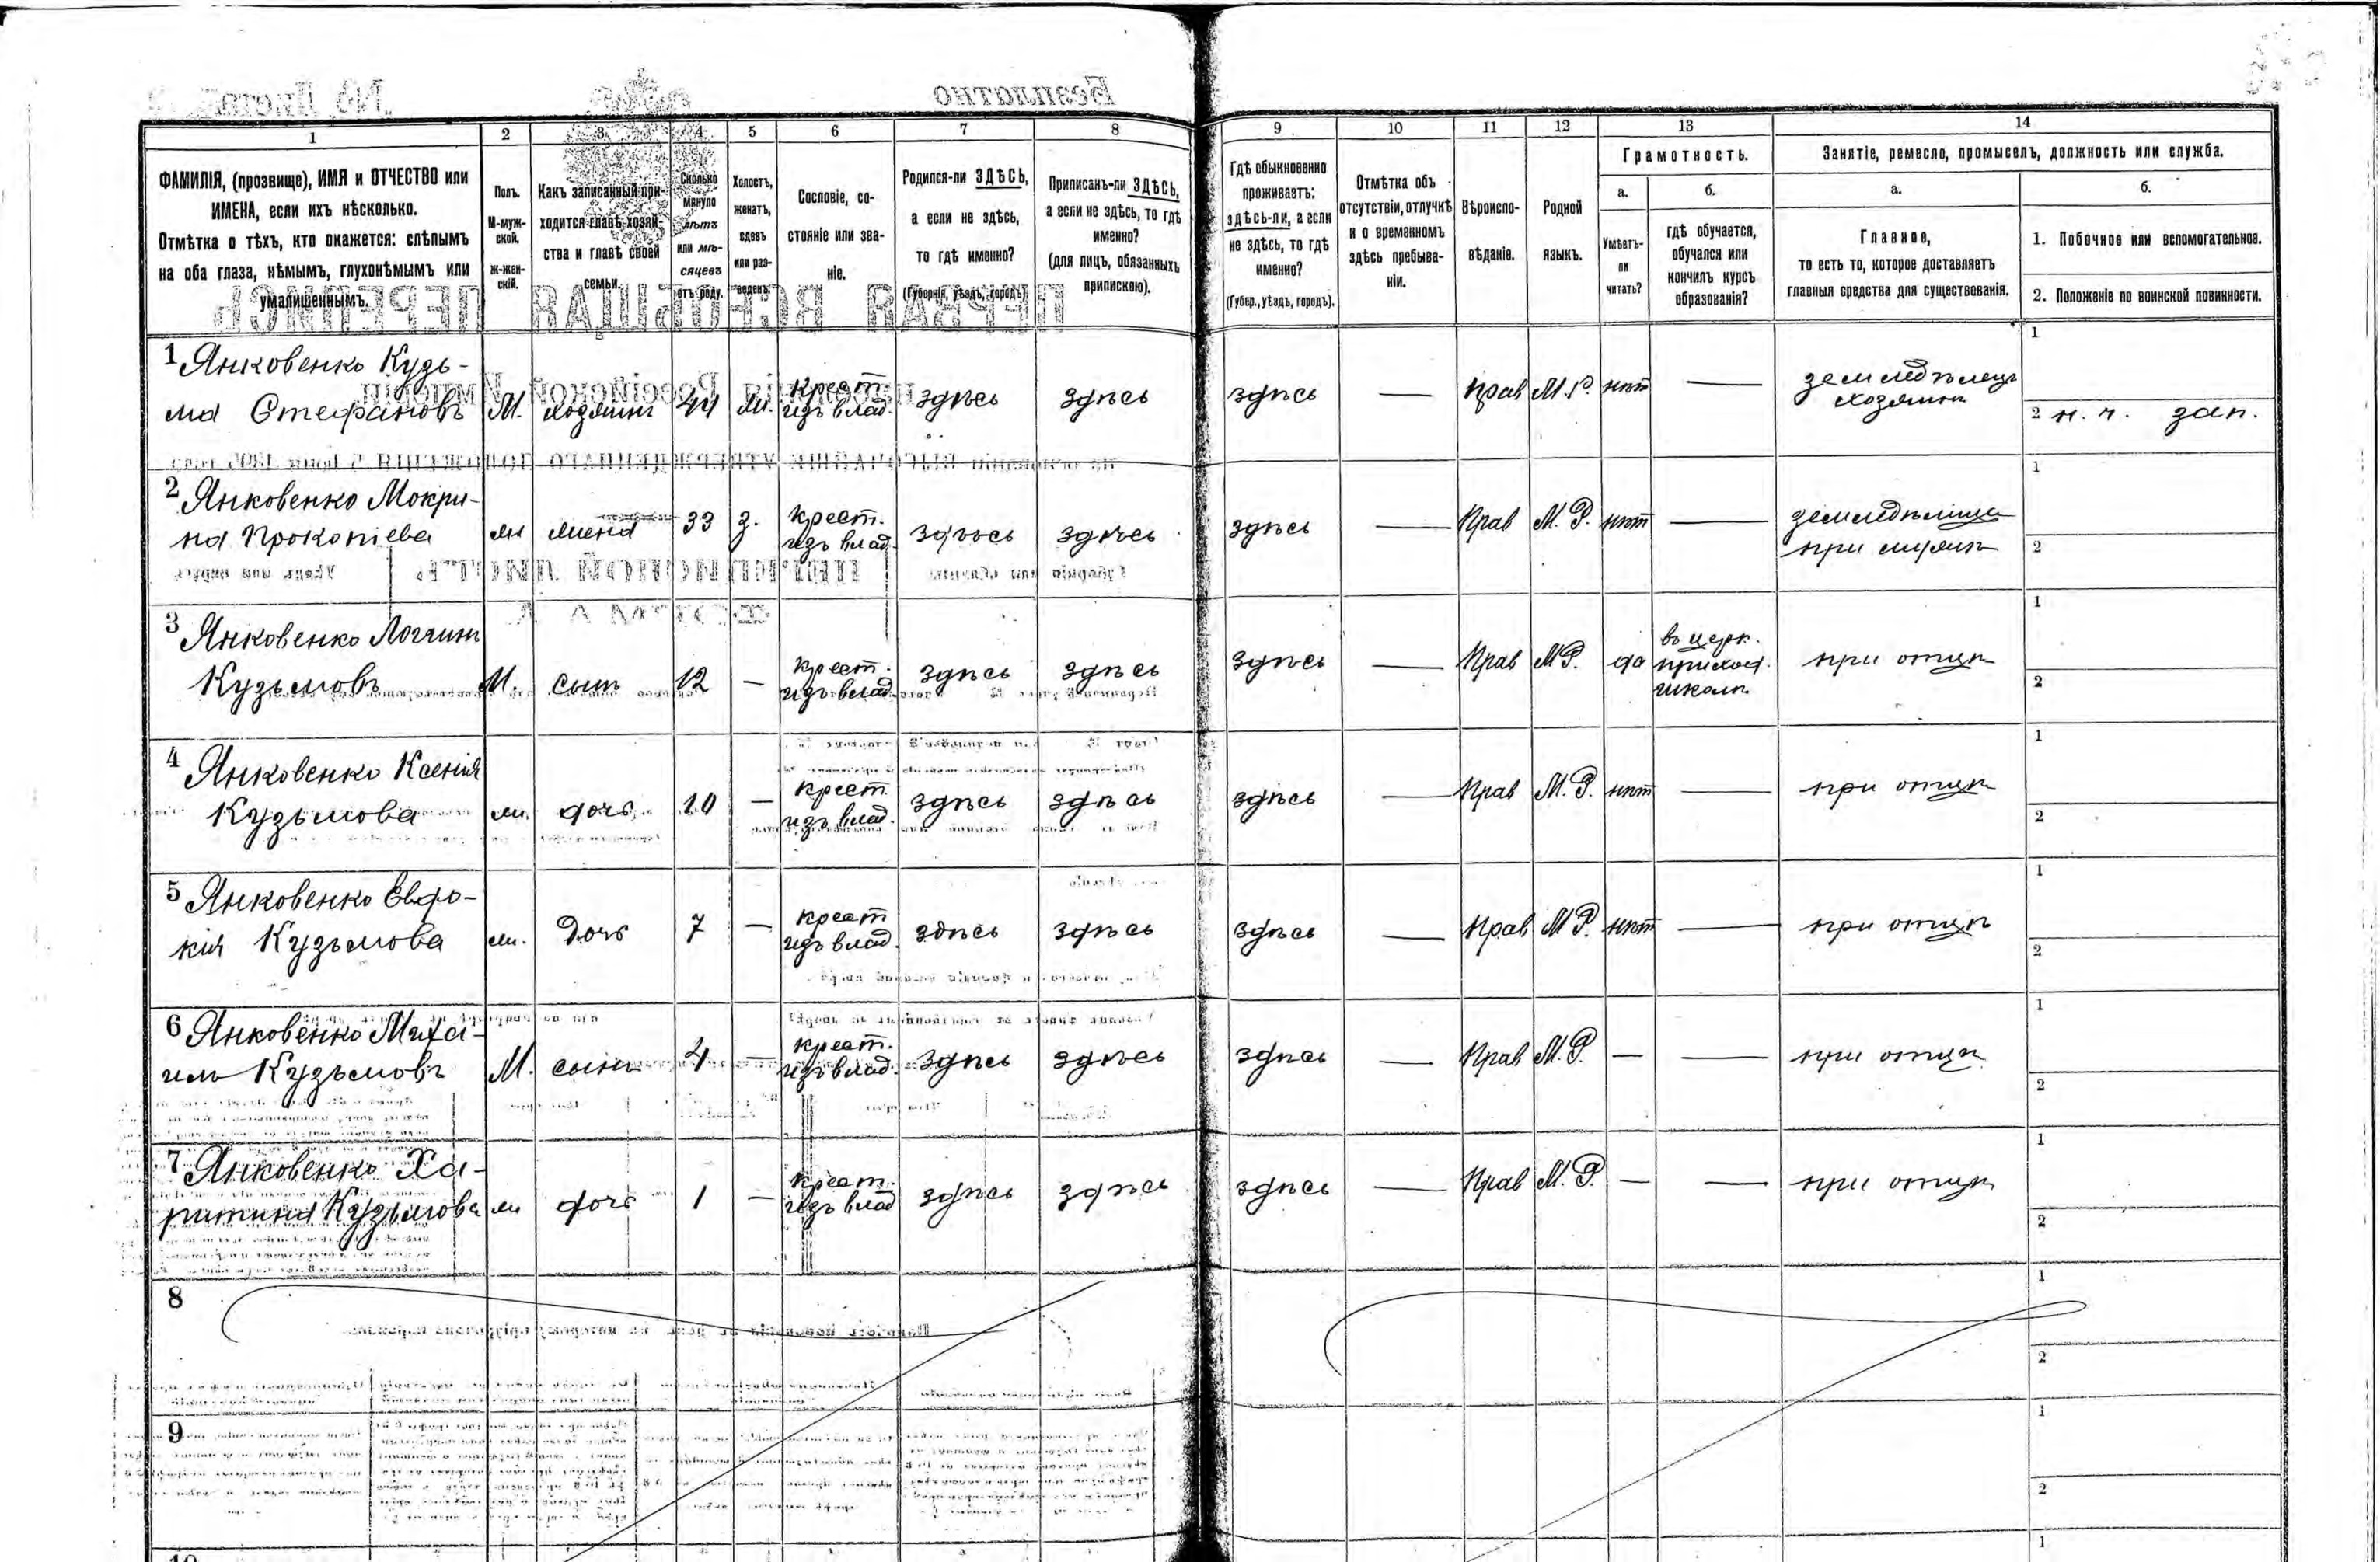 1 2 3 4 5 6 7 8 9 10 11 12 13 14
ФАМИЛІЯ, (прозвище), ИМЯ и ОТЧЕСТВО или
ИМЕНА, если ихъ нѣсколько.
Отмѣтка о тѣхъ, кто окажется: слѣпымъ
на оба глаза, нѣмымъ, глухонѣмымъ или
умалишеннымъ.
Полъ.
М-муж-
ской.
ж-жен-
скій.
Какъ записанный при-
ходится главѣ хозяй-
ства и главѣ своей
семьи.
Сколько
минуло
лѣтъ
или мѣ-
сяцевъ
отъ роду.
Холостъ,
женатъ,
вдовъ
или раз-
веденъ.
Сословіе, со-
стояніе или зва-
ніе.
Родился-ли ЗДѢСЬ,
а если не здѣсь,
то гдѣ именно?
(Губернія, уѣздъ, городъ).
Приписанъ-ли ЗДѢСЬ,
а если не здѣсь, то гдѣ
именно?
(для лицъ, обязанныхъ
припискою).
Гдѣ обыкновенно
проживаетъ:
здѣсь-ли, а если
не здѣсь, то гдѣ
именно?
(Губер., уѣздъ, городъ).
Отмѣтка объ
отсутствіи, отлучкѣ
и о временномъ
здѣсь пребыва-
ніи.
Вѣроиспо-
вѣданіе.
Родной
языкъ.
Грамотность.
а.
Умѣетъ-
ли
читать?
б.
гдѣ обучается,
обучался или
кончилъ курсъ
образованія?
Занятіе, ремесло, промыселъ, должность или служба.
а.
Главное,
то есть то, которое доставляетъ
главныя средства для существованія.
б.
1. Побочное или вспомогательное.
2. Положеніе по воинской повинности.
1 Янковенко Кузь-
ма Стефановъ М. хозяинъ 44 ж. Крест. изъ влад. здѣсь здѣсь здѣсь — Прав М.Р. нѣтъ — земледѣлецъ хозяинъ 1
2 н. ч. зап.
2 Янковенко Мокри-
на Прокопіева ж жена 33 з. Крест. изъ влад. здѣсь здѣсь здѣсь — Прав М. Р. нѣтъ — 1
2
3 Янковенко Логгинъ
Кузьмовъ М. сынъ 12 — Крест. изъ влад. здѣсь здѣсь здѣсь — Прав М Р. да въ церк. приход. школѣ при отцѣ 1
2
4 Янковенко Ксенія
Кузьмова ж. дочь 10 — Крест. изъ влад. здѣсь здѣсь здѣсь — Прав М. Р. нѣтъ — при отцѣ 1
2
5 Янковенко Евдо-
кія Кузьмова ж. Дочь 7 — Крест изъ влад. здѣсь здѣсь здѣсь — Прав М Р. нѣтъ — при отцѣ 1
2
6 Янковенко Миха-
илъ Кузьмовъ М. сынъ 4 — Крест. изъ влад. здѣсь здѣсь здѣсь — Прав М. Р. — — при отцѣ 1
2
7 Янковенко Ха-
ритина Кузьмова ж дочь 1 — Крест. изъ влад здѣсь здѣсь здѣсь — Прав М. Р. — — при отцѣ 1
2
8 1
2
9 1
2
10 1